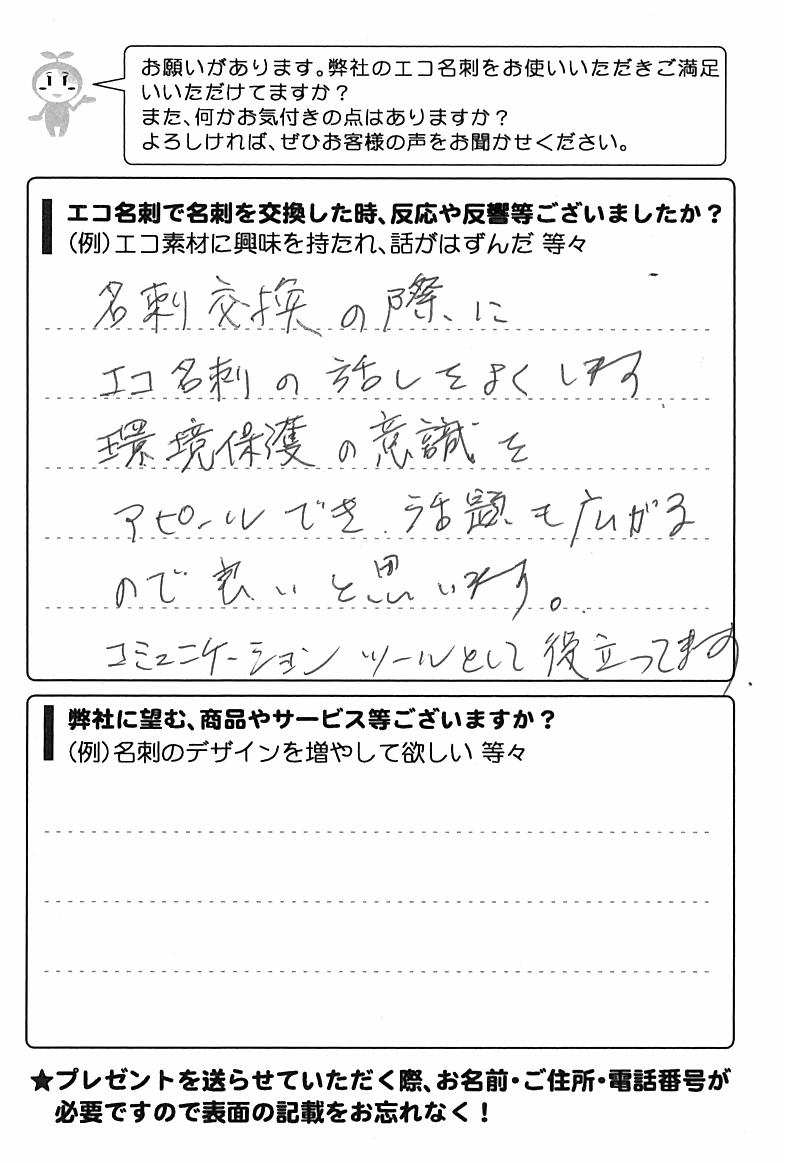 お願いがあります。弊社のエコ名刺をお使いいただきご満足
いいただけてますか？
また、何かお気付きの点はありますか？
よろしければ、ぜひお客様の声をお聞かせください。
エコ名刺で名刺を交換した時、反応や反響等ございましたか？
（例）エコ素材に興味を持たれ、話がはずんだ 等々
名刺交換の際に
エコ名刺の話しをよくします
環境保護の意識を
アピールでき、話題も広がる
ので良いと思います。
コミュニケーションツールとして役立ってます.
弊社に望む、商品やサービス等ございますか？
（例）名刺のデザインを増やして欲しい 等々
★プレゼントを送らせていただく際、お名前・ご住所・電話番号が
必要ですので表面の記載をお忘れなく！